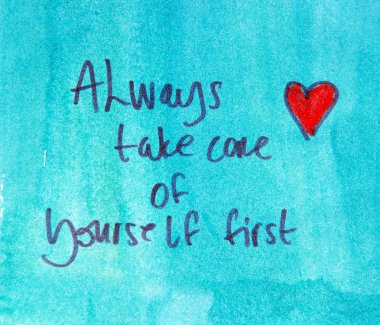 Always
take care
of
yourself first